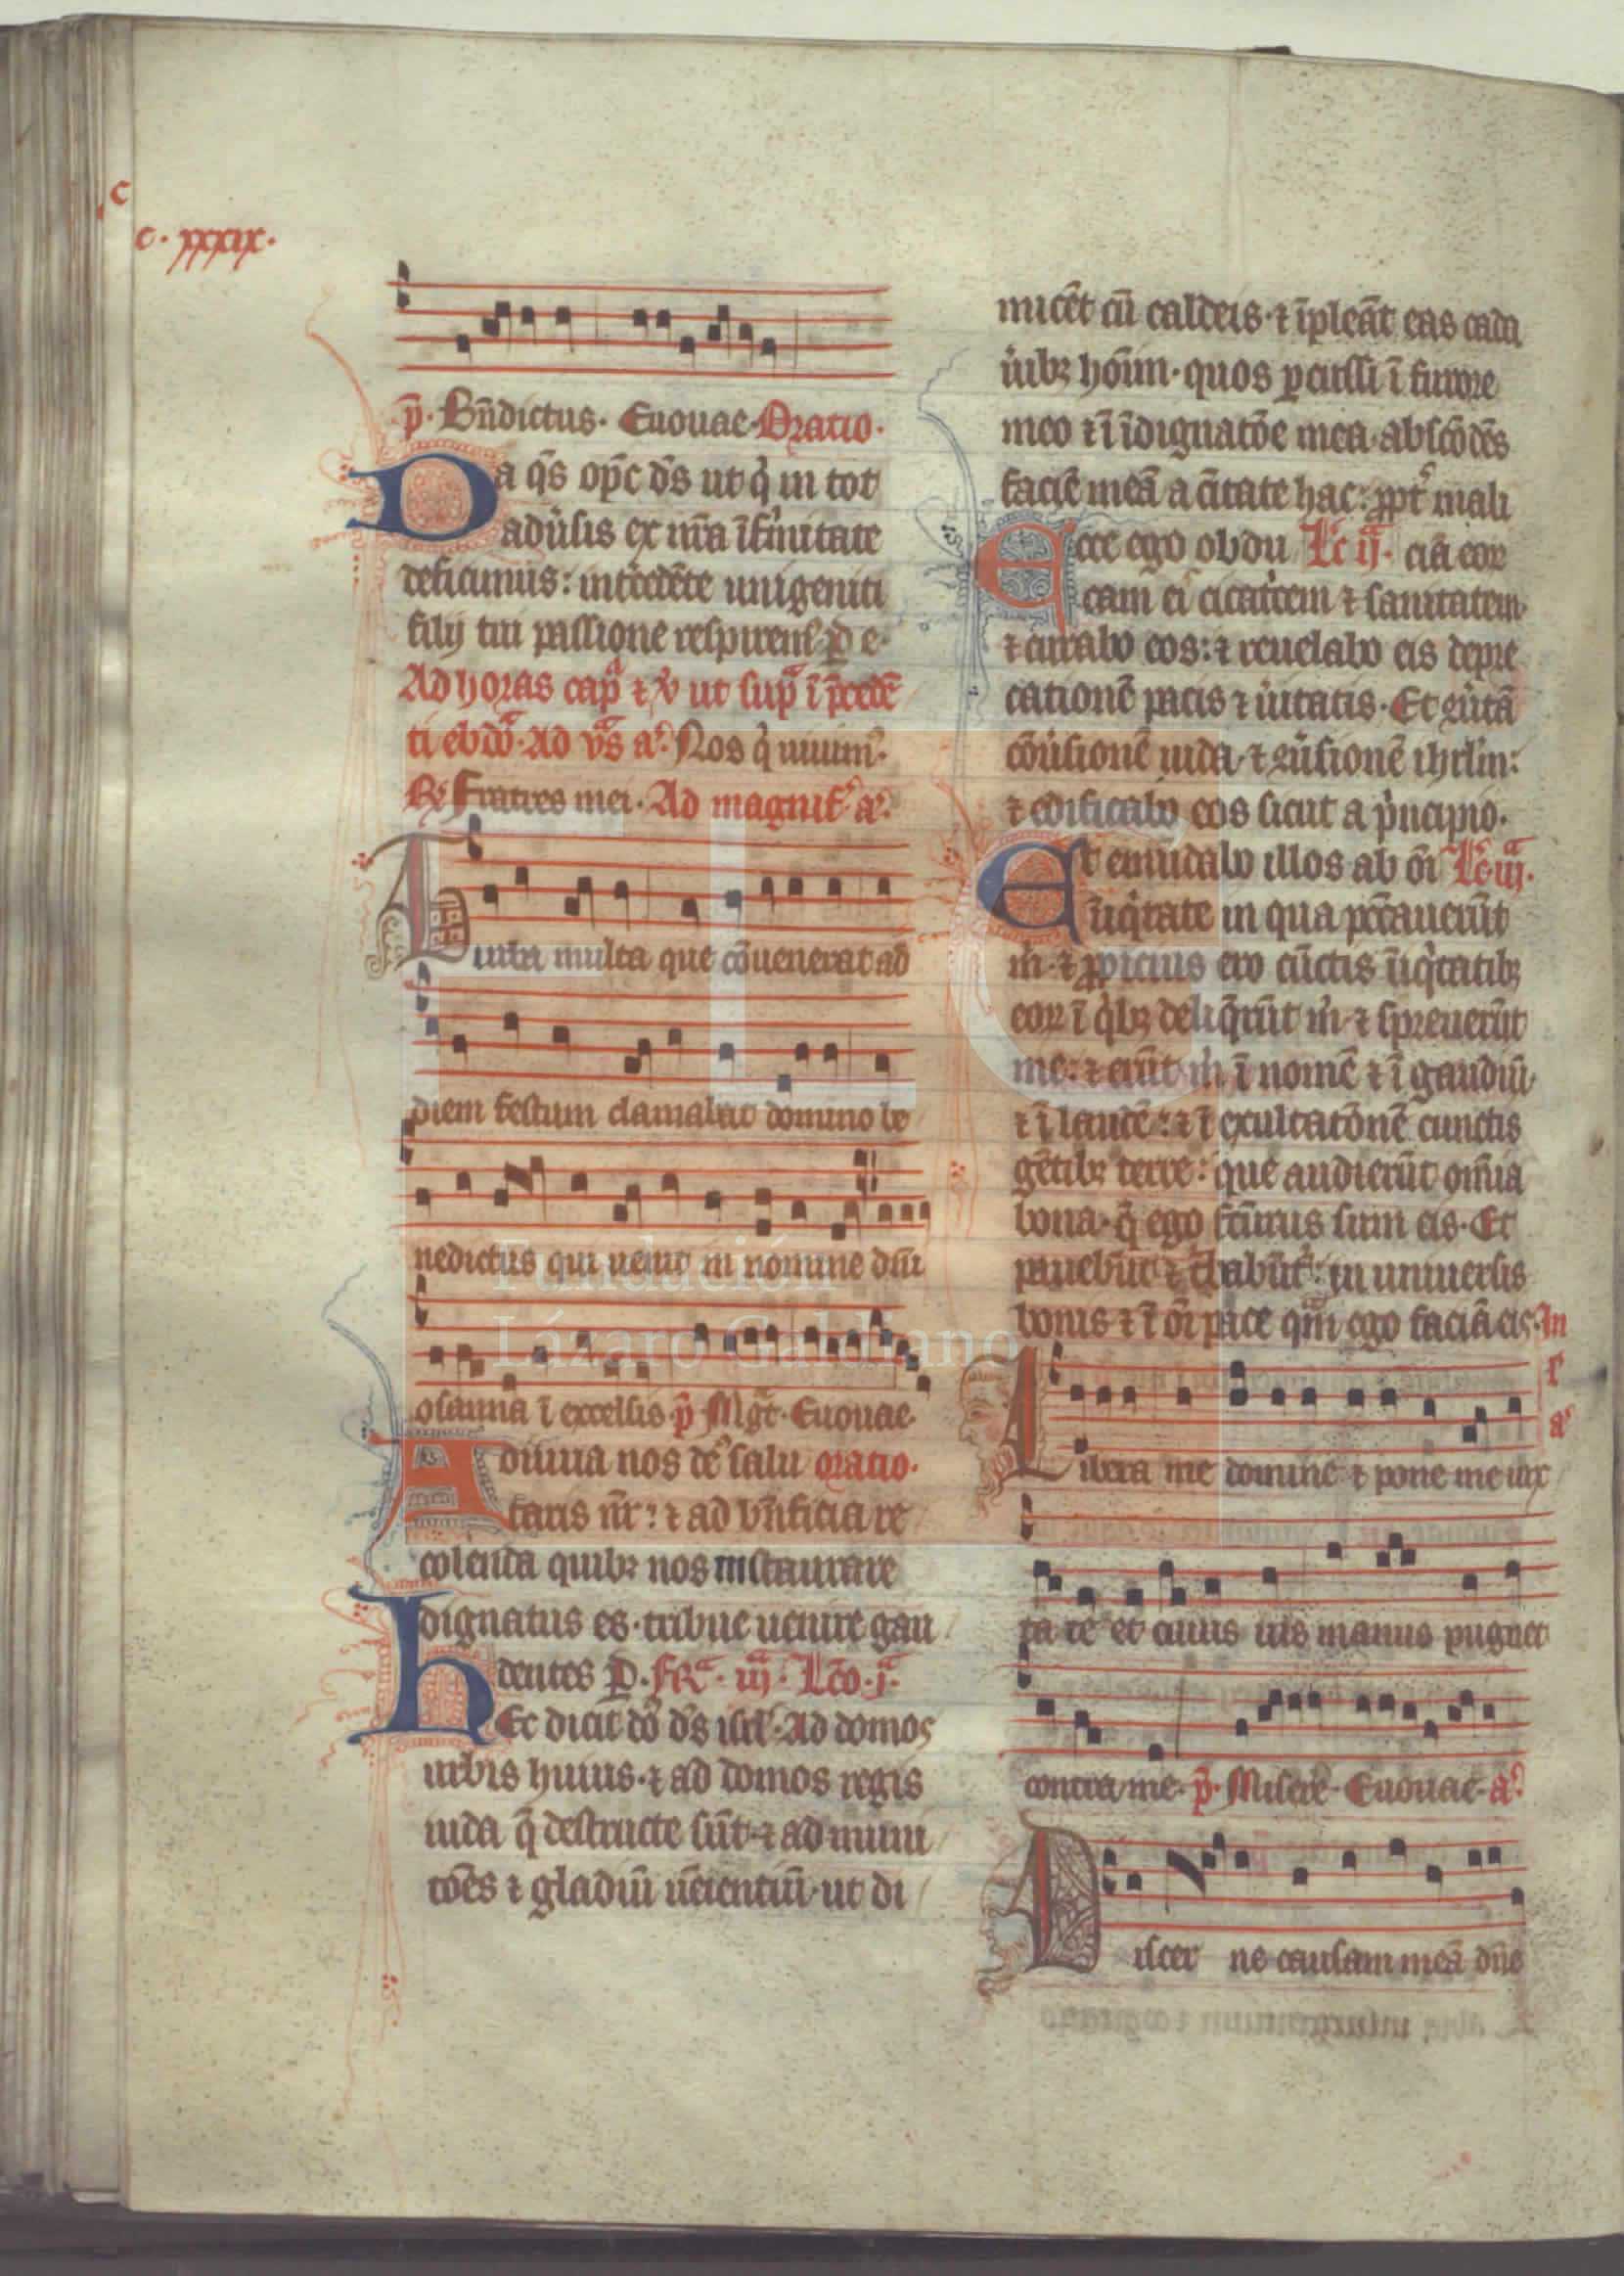 c
c. xxxix.
p̄. Bn̄dictus. Euouae. Oratio.
Da q̄s op̄c ds̄ ut q̇ in tot
adűsis ex nr̄a īfirmitate
deficimus: int̄cedēte unigeniti
filij tui passione respirem᷒ P̄ e.
Ad horas cap̄ᵃ ⁊ v̄ ut sup̄ᵃ ī p̄cedē
ti ebdōᵃ. Ad vs̄ᵃ a᷒. Nos q̇ uiuim᷒.
R᷒ Fratres mei. Ad magnif᷒ a᷒.
Turba multa que cōuenerat ad
diem festum clamabat domino be
nedictus qui uenit in nomine dn̄i
osanna ī excelsis. p̄ Mgᵃt. Euouae.
Adiuua nos de᷒ salu oratio.
taris nr̄: ⁊ ad bn̄ficia re
colenda quibꝫ nos instaurare
dignatus es. tribue uenire gau
dentes P̄. FRᵃ. iijᵃ. Lc̄o. jᵃ.
hEc dicit dō ds̄ isrl̄. Ad domos
urbis huius. ⁊ ad domos regis
iuda q̄ destructe sūt. ⁊ ad muni
tōes ⁊ gladiū ūientiū. ut di
micēt cū caldeis. ⁊ īpleāt eas cada
űibꝫ hoīm. quos percussi ī furore
meo ⁊ ī īdignatōe mea. abscōdēs
faciē meā a cītate hac: ꝓpt᷒ mali
Ecce ego obdu Lc̄ ijᵃ. ciā eoꝝ
cam ei cicat̄cem ⁊ sanitatem
⁊ curabo eos: ⁊ reuelabo eis depre
cationē pacis ⁊ űitatis. Et ꝯűtā
cōűsionē iuda. ⁊ ꝯűsionē ihrl̄m:
⁊ edificabo eos sicut a p̍ncipio.
Et emūdabo illos ab oī Lc̄ iijᵃ.
īiq̇tate in qua peccauerūt
m̍. ⁊ ꝓpicius ero cūctis īiq̇tatibꝫ
eoꝝ ī q̇bꝫ deliq̄rūt m̍ ⁊ spreuerūt
me: ⁊ erūt m̍ ī nomē ⁊ ī gaudiū
⁊ ī laudē: ⁊ ī exultatōnē cunctis
gētibꝫ terre: que audierūt omīa
bona. q̄ ego fcūrus sum eis. Et
pauebūt ⁊ t̄babūt᷒: in uniuersis
bonis ⁊ ī oī pace qᵃm ego faciā eis. In
r̄
a᷒
Libera me domine ⁊ pone me iux
ta te et cuius uis manus pugnet
contra me. p̄. Misere. Euouae. a᷒.
Discer ne causam meā dn̄e
FLG
Fundación
Lázaro Galdiano